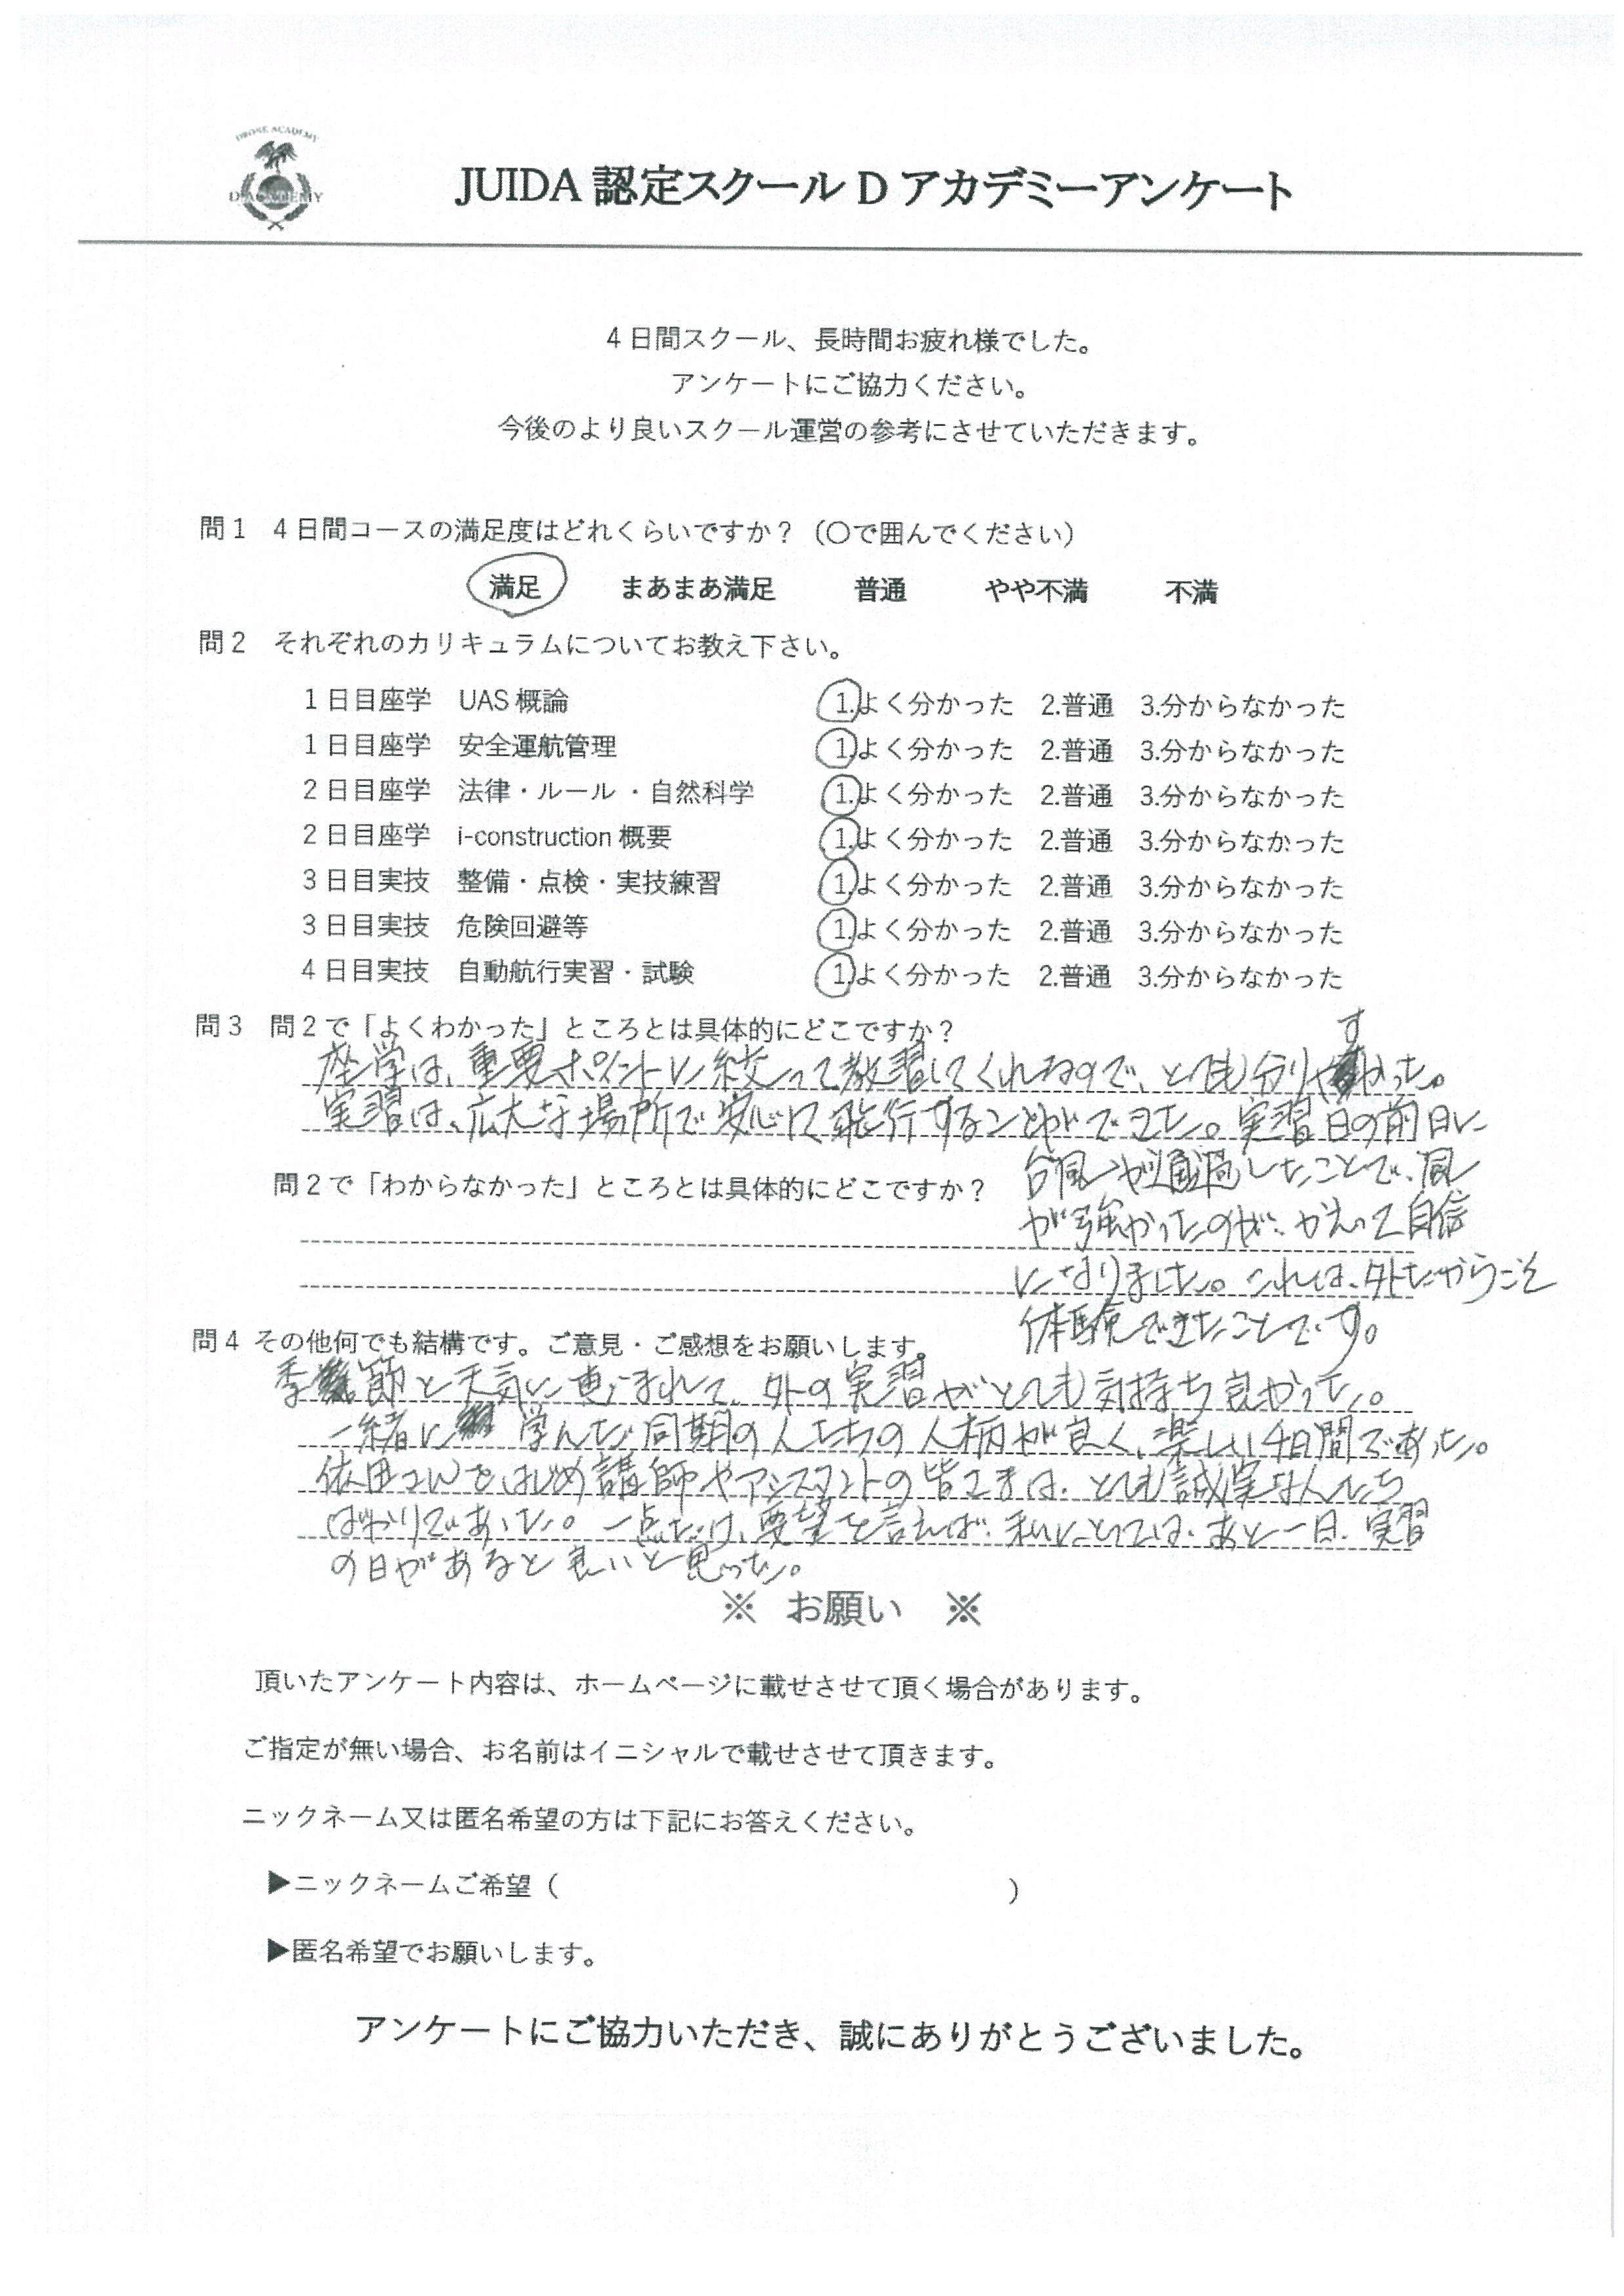 DRONE ACADEMY
D.ACADEMY
JUIDA 認定スクール D アカデミーアンケート
4日間スクール、長時間お疲れ様でした。
アンケートにご協力ください。
今後のより良いスクール運営の参考にさせていただきます。
問1 4日間コースの満足度はどれくらいですか？（〇で囲んでください）
満足 まあまあ満足 普通 やや不満 不満
問2 それぞれのカリキュラムについてお教え下さい。
1日目座学 UAS 概論 1.よく分かった 2.普通 3.分からなかった
1日目座学 安全運航管理 1.よく分かった 2.普通 3.分からなかった
2日目座学 法律・ルール・自然科学 1.よく分かった 2.普通 3.分からなかった
2日目座学 i-construction 概要 1.よく分かった 2.普通 3.分からなかった
3日目実技 整備・点検・実技練習 1.よく分かった 2.普通 3.分からなかった
3日目実技 危険回避等 1.よく分かった 2.普通 3.分からなかった
4日目実技 自動航行実習・試験 1.よく分かった 2.普通 3.分からなかった
問3 問2で「よくわかった」ところとは具体的にどこですか？
座学は、重要ポイントに絞って教習してくれるので、とても分りやすかった。
実習は、広大な場所で安心して飛行することができた。実習日の前日に
台風が通過したことで、風
が強かったのが、かえって自信
になりました。これは、外だからこそ
体験できたことです。
問2で「わからなかった」ところとは具体的にどこですか？
問4 その他何でも結構です。ご意見・ご感想をお願いします。
季節と天気に恵まれて、外の実習がとても気持ち良かった。
一緒に学んだ同期の人たちの人柄が良く、楽しい4日間であった。
依田さんをはじめ講師やアシスタントの皆さまは、とても誠実な人たち
ばかりであった。一点だけ、要望を言えば、私にとっては、あと一日、実習
の日があると良いと思った。
※ お願い ※
頂いたアンケート内容は、ホームページに載せさせて頂く場合があります。
ご指定が無い場合、お名前はイニシャルで載せさせて頂きます。
ニックネーム又は匿名希望の方は下記にお答えください。
▶ニックネームご希望（ ）
▶匿名希望でお願いします。
アンケートにご協力いただき、誠にありがとうございました。